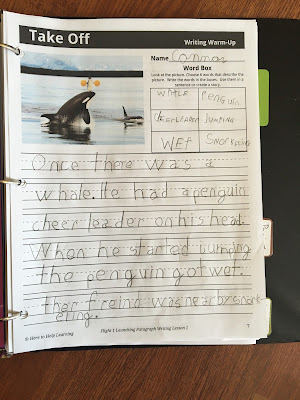 Take Off
Writing Warm-Up
Name Connor
Word Box
Look at the picture. Choose 6 words that describe the
picture. Write the words in the boxes. Use them in a
sentence or create a story.
WHALE PENGUIN
CHEERLEADER JUMPING
WET SNORKELING
Once there was a
whale. He had a penguin
cheer leader on his head.
When he started jumping
the penguin got wet.
Ther freind was nearby snork-
eling.
© Here to Help Learning
Flight 1 Launching Paragraph Writing Lesson 1
7